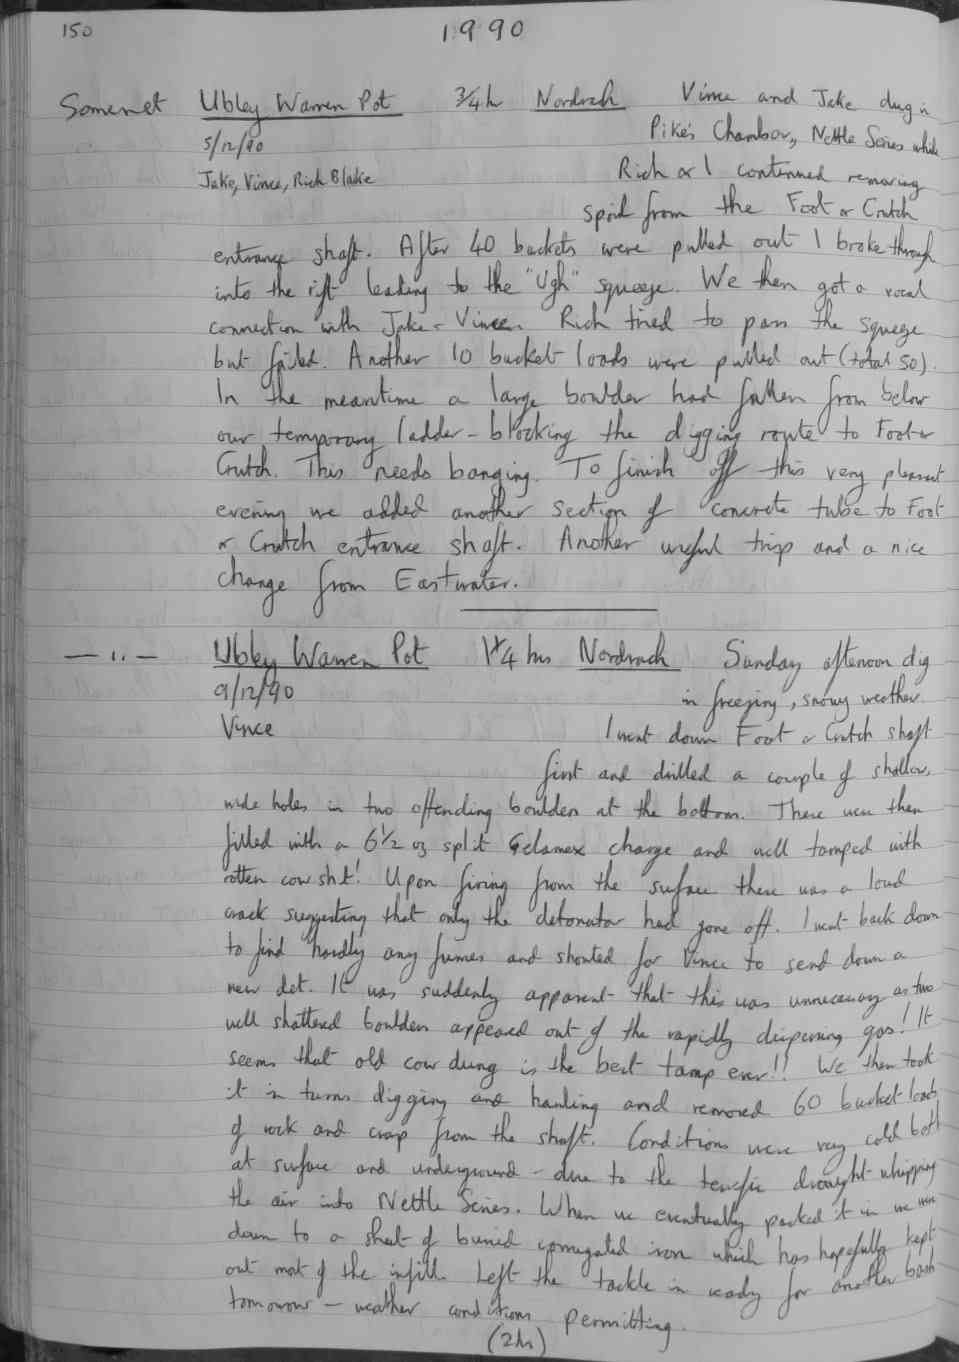 150
1990
Somerset Ubley Warren Pot 3/4 h Nordrach Vince and Jake dug in
5/12/90 Pike's Chamber, Nettle Series while
Jake, Vince, Rich Blake Rich & I continued removing
spoil from the Foot or Crutch
entrance shaft. After 40 buckets were pulled out I broke through
into the rift leading to the "Ugh" squeeze. We then got a vocal
connection with Jake & Vince. Rich tried to pass the squeeze
but failed. Another 10 bucket loads were pulled out (total 50).
In the meantime a large boulder had fallen from below
our temporary ladder - blocking the digging route to Foot or
Crutch. This needs banging. To finish off this very pleasant
evening we added another section of concrete tube to Foot
or Crutch entrance shaft. Another useful trip and a nice
change from Eastwater.
— " — Ubley Warren Pot 1 1/4 hrs Nordrach Sunday afternoon dig
9/12/90 in freezing, snowy weather.
Vince I went down Foot or Crutch shaft
first and drilled a couple of shallow,
wide holes in two offending boulders at the bottom. These were then
filled with a 6 1/2 oz split Gelamex charge and well tamped with
rotten cow shit! Upon firing from the surface there was a loud
crack suggesting that only the detonator had gone off. I went back down
to find hardly any fumes and shouted for Vince to send down a
new det. It was suddenly apparent that this was unnecessary as two
well shattered boulders appeared out of the rapidly dispersing gas! It
seems that old cow dung is the best tamp ever!! We then took
it in turns digging and hauling and removed 60 bucket loads
of rock and crap from the shaft. Conditions were very cold both
at surface and underground - due to the terrific draught whipping
the air into Nettle Series. When we eventually packed it in we were
down to a sheet of buried corrugated iron which has hopefully kept
out most of the infill. Left the tackle in ready for another bash
tomorrow - weather conditions permitting.
(2hr)